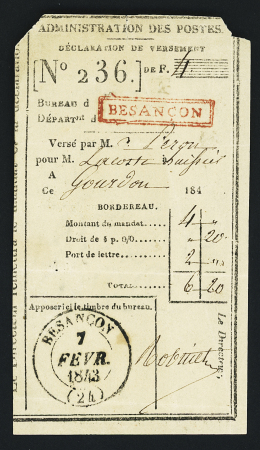 ADMINISTRATION DES POSTES.
DÉCLARATION DE VERSEMENT
[No 236.] DE F. 4
BUREAU d
DÉPARTt d
BESANCON
Versé par M. C. Peron
pour M. Lacoste
A Gourdon
Ce 184
BORDEREAU.
Montant du mandat.... 4 "
Droit de 5 p. 0/0.... " 20
Port de lettre.... 2 "
TOTAL.... 6 20
Apposer ici le timbre du bureau.
Le Directeur
BESANCON
7
FEVR.
1843
(24)